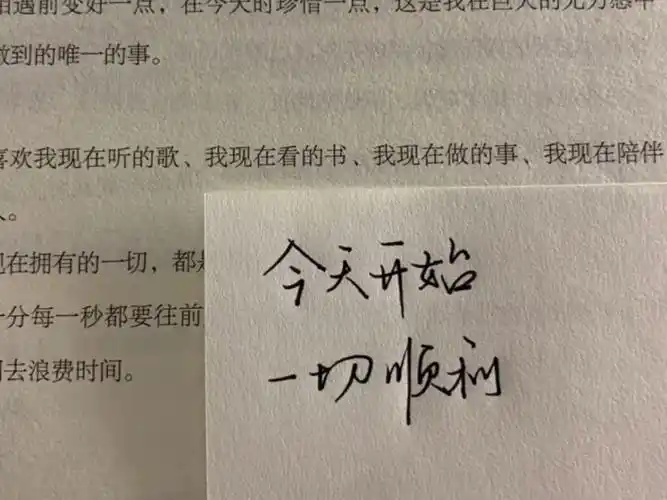 相遇前变好一点，在今天时珍惜一点，这是我在巨大的无力感中
做到的唯一的事。
喜欢我现在听的歌、我现在看的书、我现在做的事、我现在陪伴
人。
现在拥有的一切，都是
一分每一秒都要往前
去浪费时间。
今天开始
一切顺利